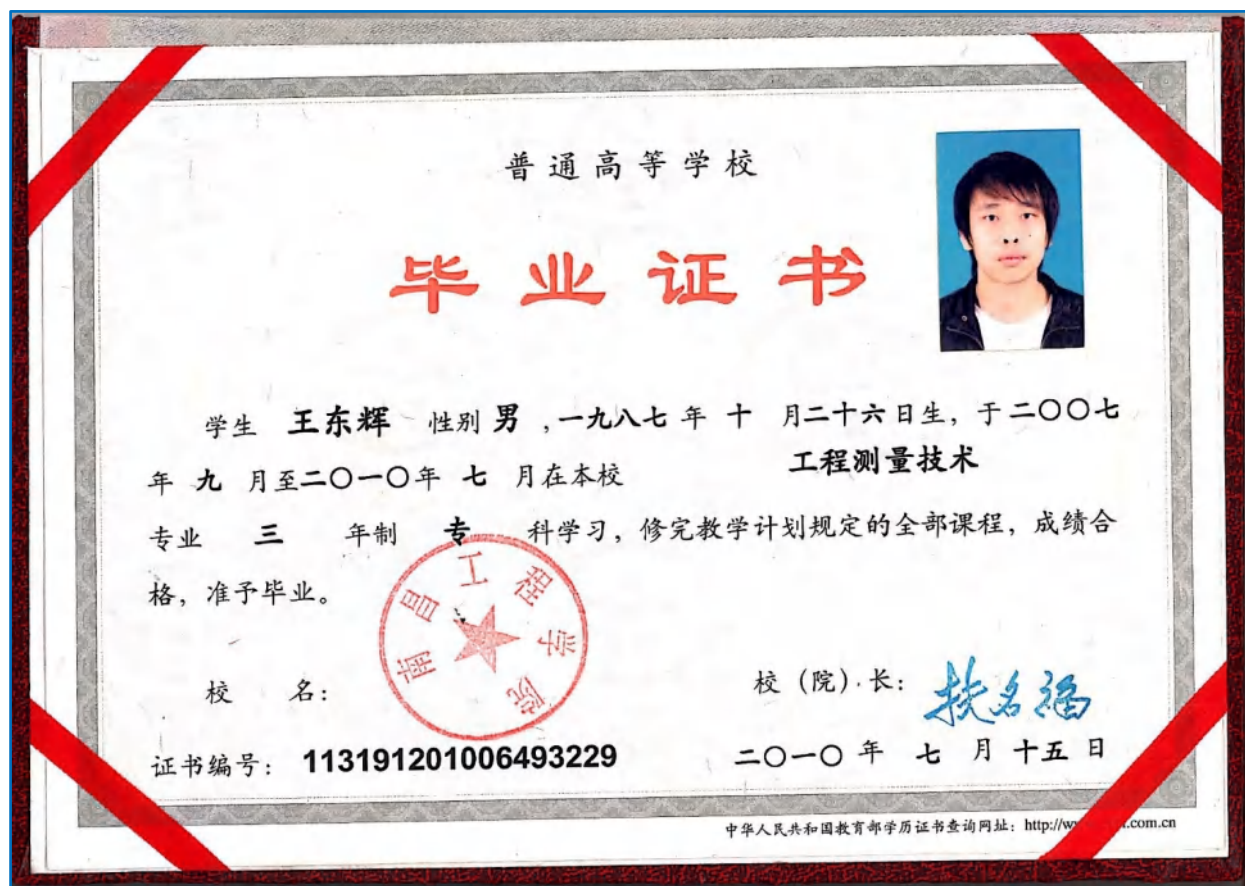 普通高等学校
毕业证书
学生 王东辉 性别 男 ,一九八七 年 十 月二十六日生, 于二〇〇七
年 九 月至二〇一〇年 七 月在本校 工程测量技术
专业 三 年制 专 科学习, 修完教学计划规定的全部课程, 成绩合
格, 准予毕业。
南昌工程学院
校 名:
校 (院) 长: 扶名福
证书编号: 113191201006493229
二〇一〇 年 七 月 十五 日
中华人民共和国教育部学历证书查询网址: http://w .com.cn